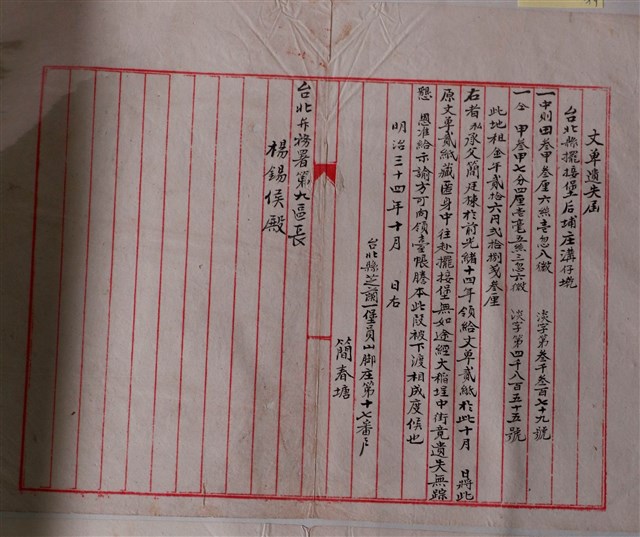 文單遺失屆
台北縣擺接堡后埔庄溝仔墘
一中則田叁甲叁厘六絲壹忽八微　淡字第叁千叁百七十九號
一仝　甲叁甲七分四厘壱毫五絲三忽六微　淡字第四千八百五十五號
此地租金年貳拾六円弐拾捌戔叁厘
右者私承父簡廷棟於前光緒十四年領給文單貳紙於此十月　日將此
原文單貳紙藏匿身中往赴擺接堡無如途經大稻埕中街竟遺失無踪
懇　恩准給示諭方可向領臺帳謄本此段被下渡相成度候也
明治三十四年十月　日右
台北縣芝蘭一堡員山脚庄第十七番戶
簡春塘
台北弁務署第九區長
楊錫侯殿